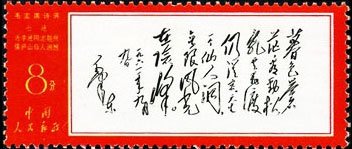 毛主席诗词
七绝
为李进同志题所摄
庐山仙人洞照
8分
中国
人民邮政
暮色苍
茫看劲松
乱云飞渡
仍从容天生
一个仙人洞
无限风光
在险峰
一九六一年九月
九日
毛泽东